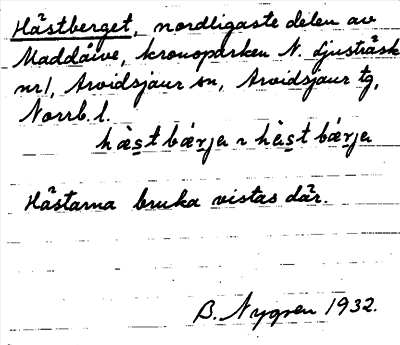 Hästberget, nordligaste delen av
Maddåive, kronoparken N. Ljusträsk
nr 1, Arvidsjaur sn, Arvidsjaur tg,
Norrb. l.
hàstbǽrja ~ hèstbǽrja
Hästarna bruka vistas där.
B. Nygren 1932.